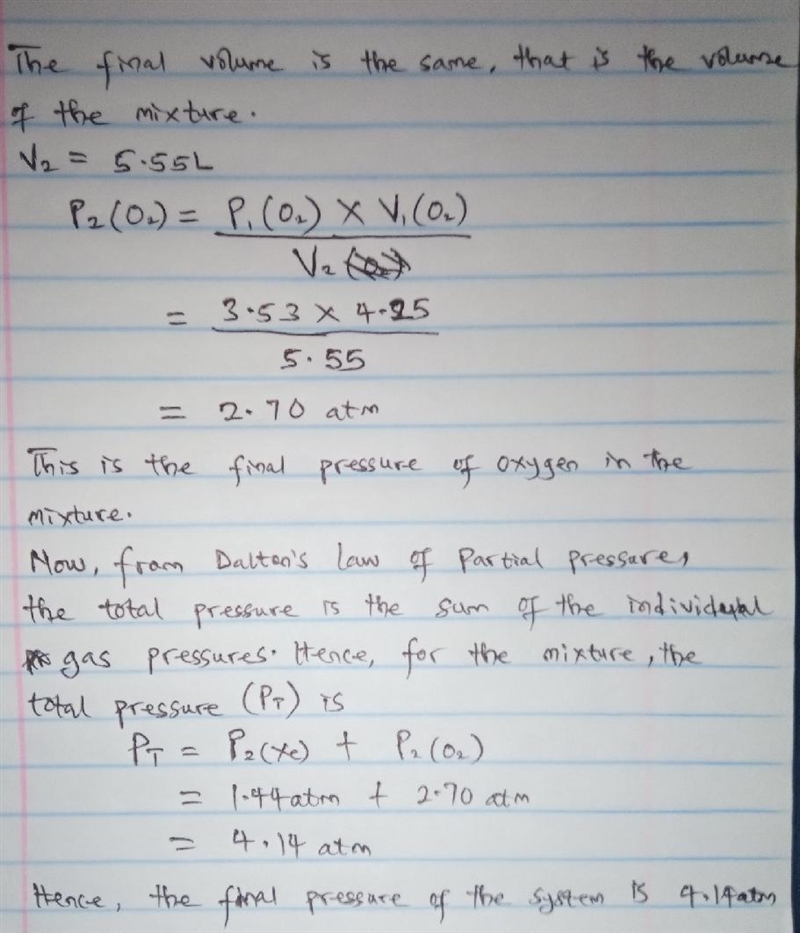 The final volume is the same, that is the volume
of the mixture.
V₂ = 5.55L
P₂(O₂) = P₁(O₂) × V₁(O₂)
V₂
= 3.53 × 4.25
5.55
= 2.70 atm
This is the final pressure of oxygen in the
mixture.
Now, from Dalton's law of Partial pressures,
the total pressure is the sum of the individual
gas pressures. Hence, for the mixture, the
total pressure (P_T) is
P_T = P₂(Xe) + P₂(O₂)
= 1.44atm + 2.70 atm
= 4.14 atm
Hence, the final pressure of the system is 4.14atm